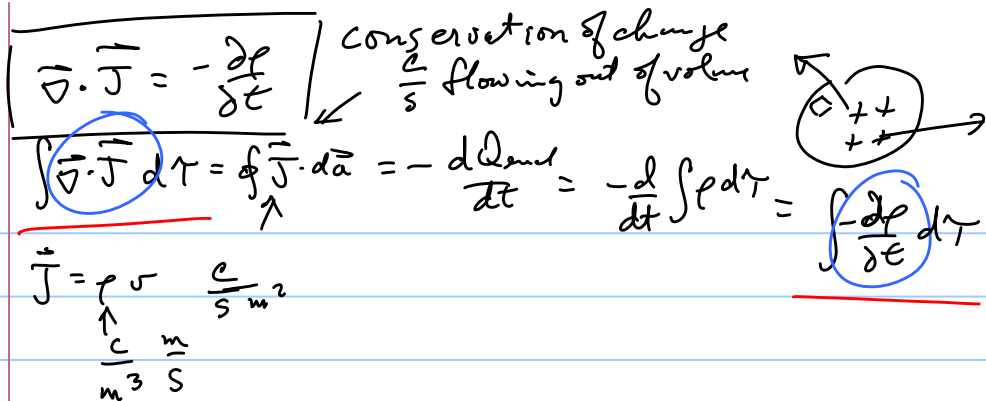 ∇⃗ · J⃗ = - ∂ρ/∂t
conservation of charge
C/s flowing out of volume
∫ ∇⃗ · J⃗ dτ = ∮ J⃗ · da⃗ = - dQencl/dt = -d/dt ∫ ρ dτ = ∫ -∂ρ/∂t dτ
+ +
+ +
J⃗ = ρ v C/(s m²)
C/m³ m/s